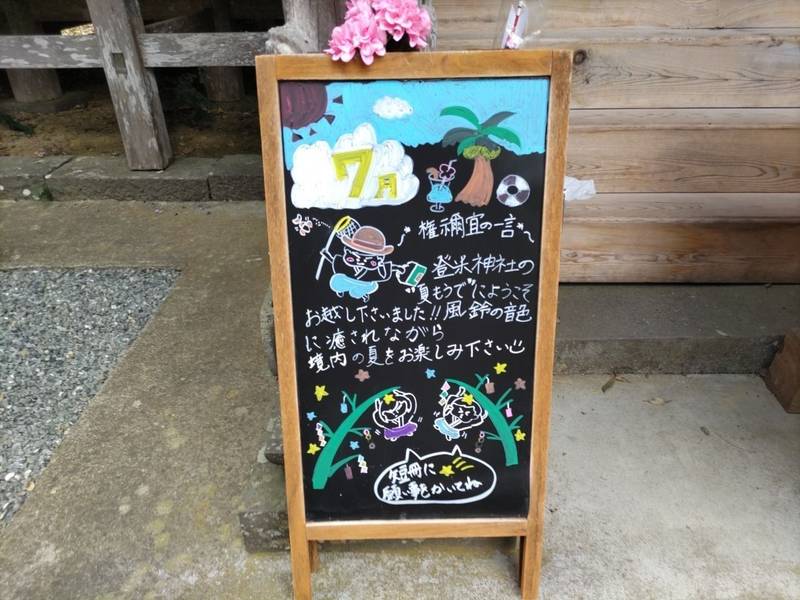 7月
権禰宜の一言
登米神社の
"夏もうで"にようこそ
お越し下さいました!!風鈴の音色
に癒されながら
境内の夏をお楽しみ下さい
短冊に
願い事をかいてね